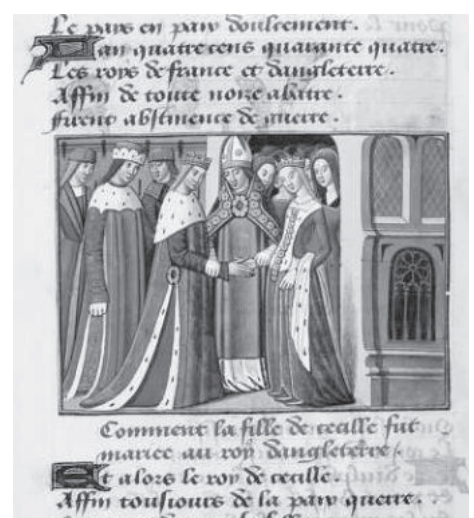 Le pays en paix doulcement.
Lan quatre cens quarante quatre.
Les roys de france et dangleterre.
Affin de toute noise abatre.
furent abstinence de guerre.
Comment la fille de cecille fut
mariee au roy dangleterre
Et alors le roy de cecille.
Affin tousiours de la paix querre.